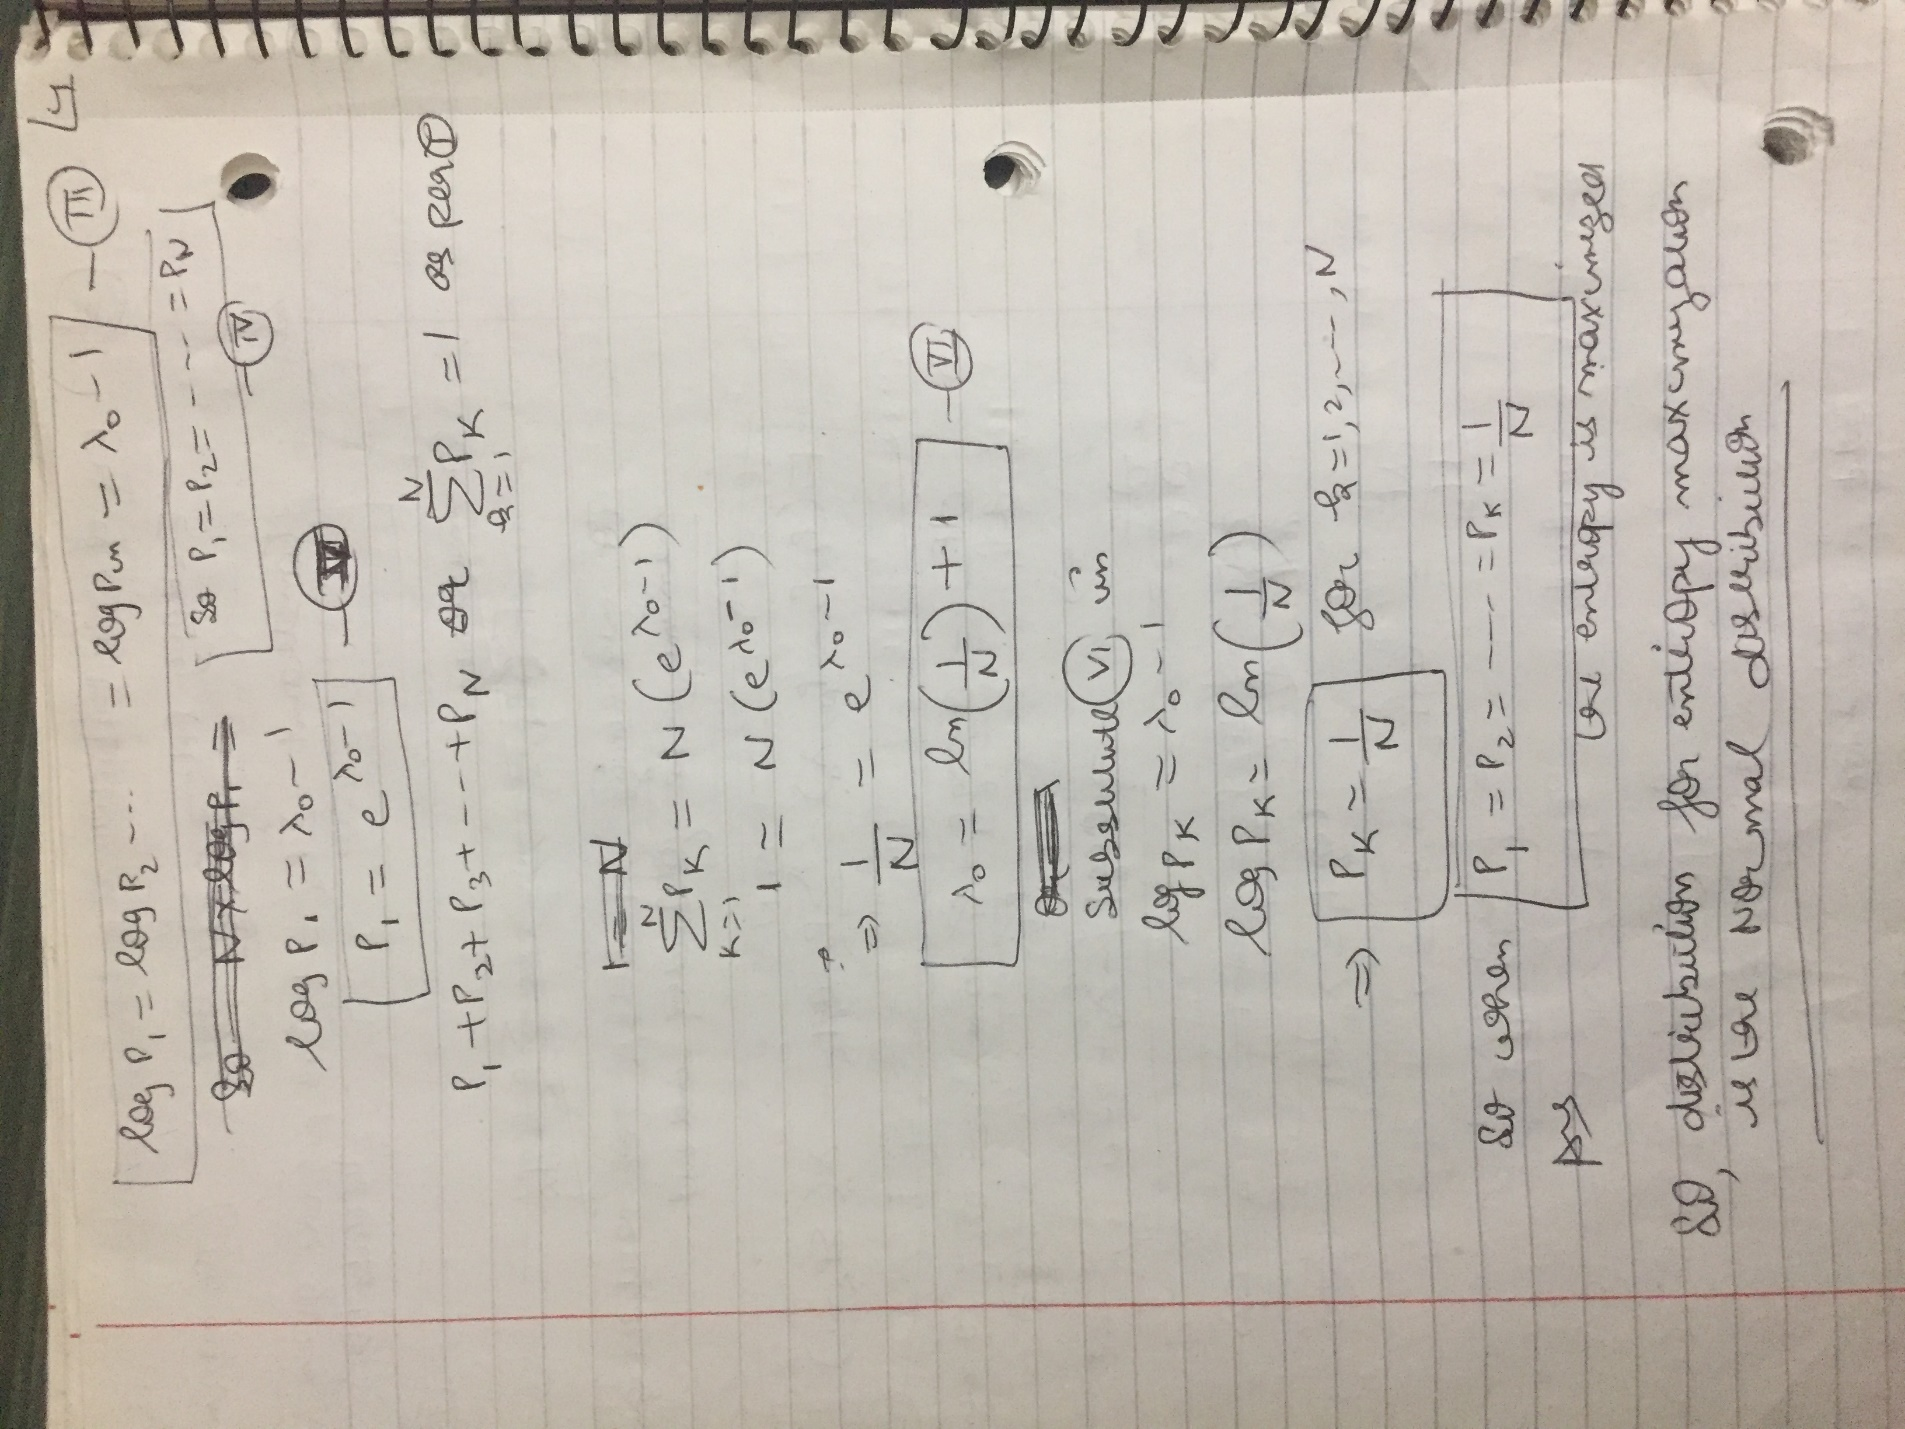 4
log P₁ = log P₂ --- = log Pₘ = λ₀ - 1 — III
So P₁ = P₂ = --- = P_N — IV
So N × log P₁ =
log P₁ = λ₀ - 1
P₁ = e^(λ₀-1)
P₁ + P₂ + P₃ + --- + P_N or Σ_{k=1}^{N} P_K = 1 as per I
1 = N
Σ_{K=1}^{N} P_K = N (e^(λ₀-1))
1 = N (e^(λ₀-1))
⇒ 1/N = e^(λ₀-1)
λ₀ = ln(1/N) + 1 — VI
Substitute VI in
log P_K = λ₀ - 1
log P_K = ln(1/N)
⇒ P_K = 1/N for k = 1, 2, ---, N
So when P₁ = P₂ = ---- = P_K = 1/N
the entropy is maximized
So, distribution for entropy maxmization
is the Normal distribution